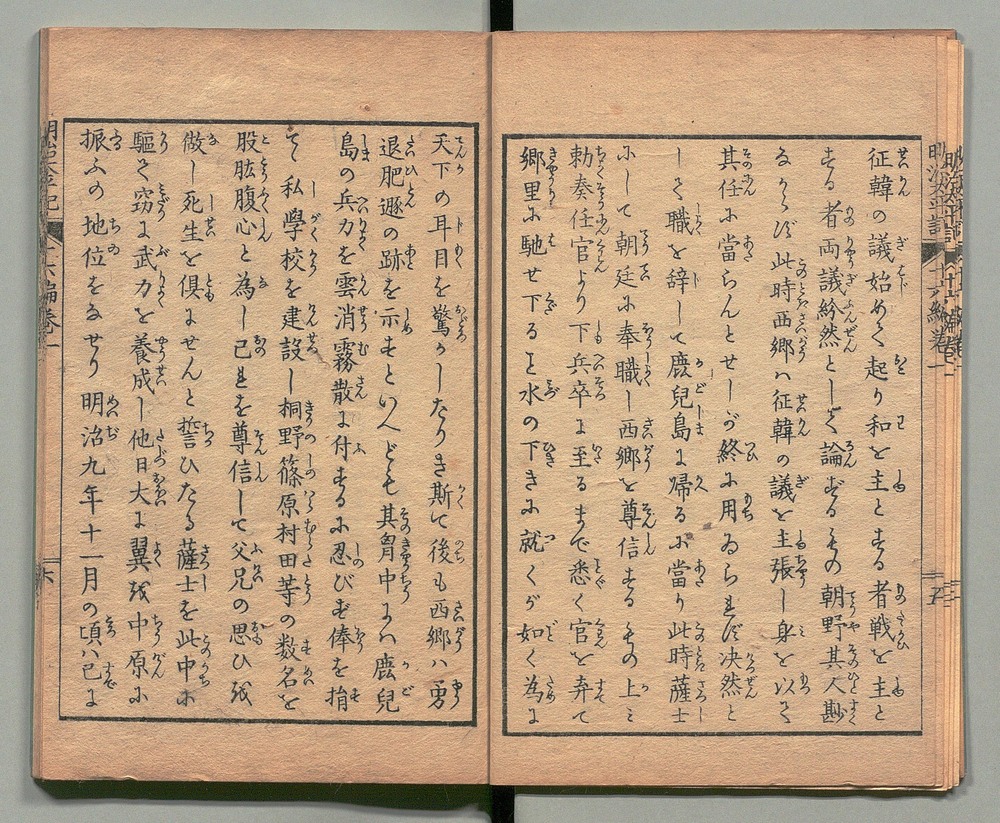 征韓の議始めて起り和を主とする者戦を主と
する者両議紛然として論ずるもの朝野其人尠
なからず此時西郷ハ征韓の議を主張し身を以て
其任に當らんとせしが終に用ゐられず决然と
して職を辞して鹿兒島に帰るに當り此時薩士
にして朝廷に奉職し西郷を尊信するもの上ミ
勅奏任官より下兵卒に至るまで悉く官を弃て
郷里に馳せ下ること水の下きに就くが如く為に
天下の耳目を驚かしたりき斯て後も西郷ハ勇
退肥遯の跡を示すといへども其胷中にハ鹿兒
島の兵力を雲消霧散に付するに忍びず俸を捐
て私學校を建設し桐野篠原村田等の数名を
股肱腹心と為し己れを尊信して父兄の思ひを
做し死生を倶にせんと誓ひたる薩士を此中に
驅て窃に武力を養成し他日大に翼を中原に
振ふの地位をなせり 明治九年十一月の頃ハ已に
明治太平記
十六編巻一
五
六